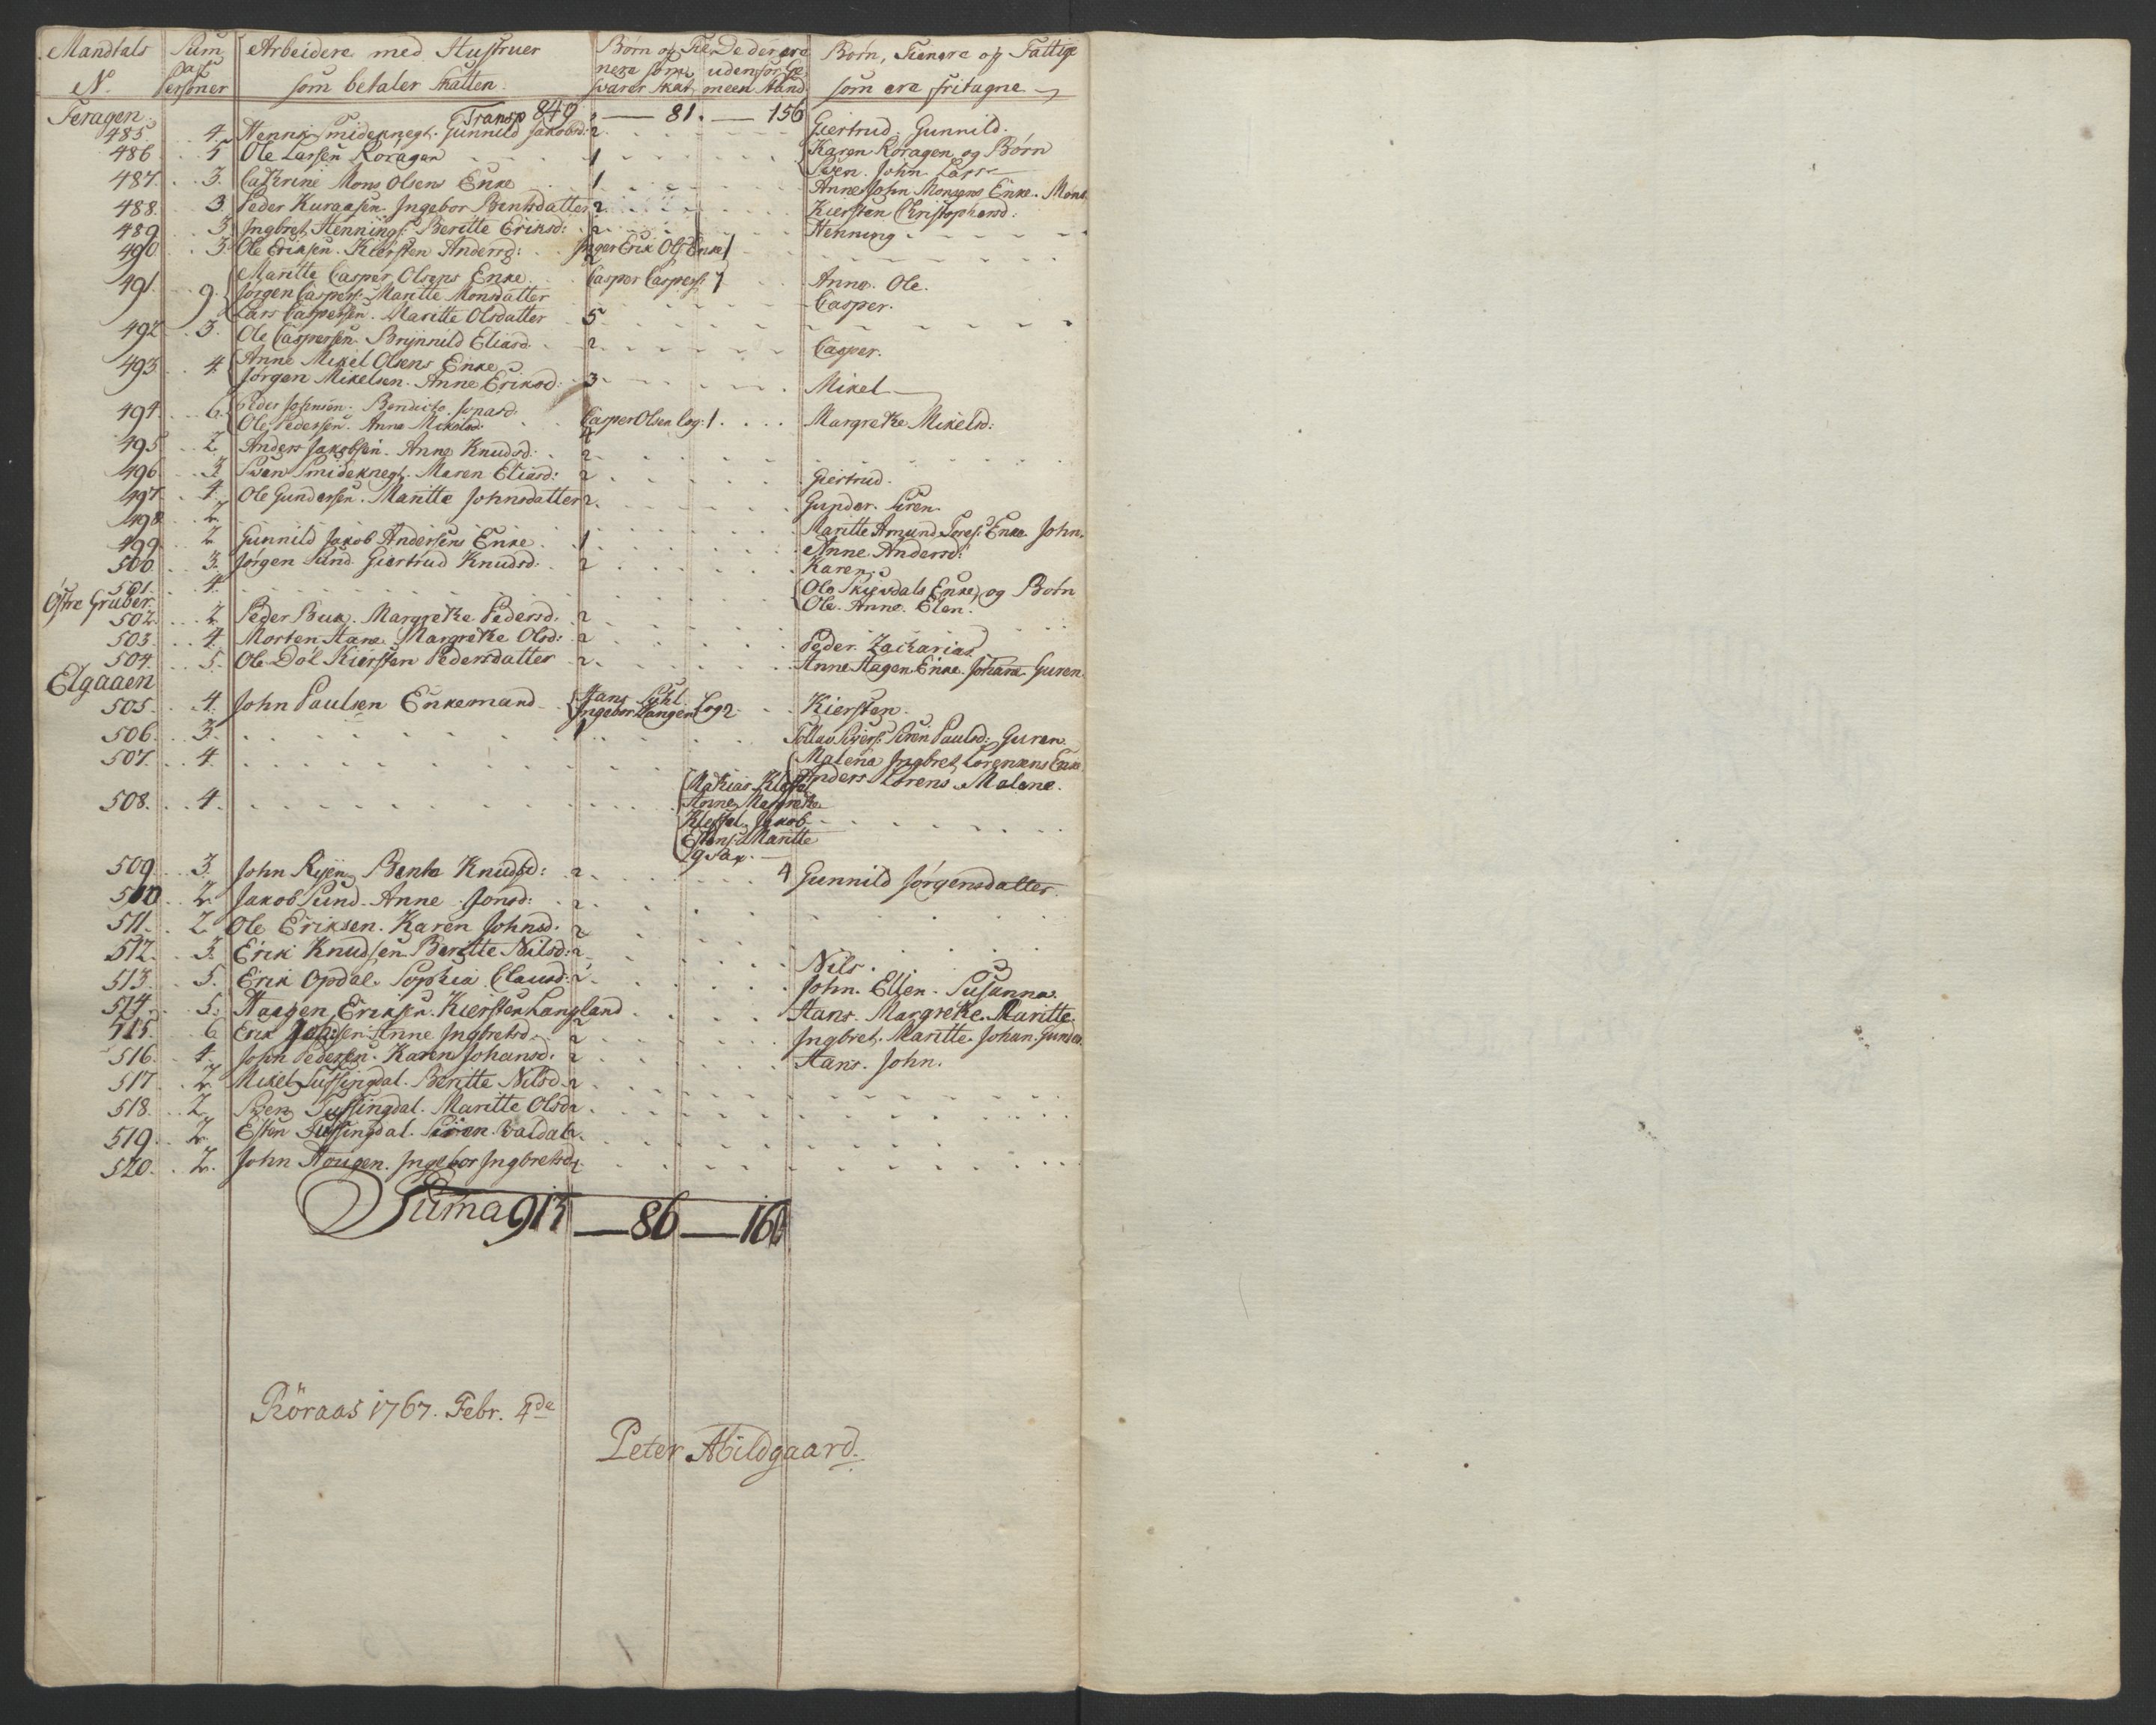 Mandtals N.o | Sum Personer | Arbeidere med Hustruer som betaler Skatten. | Børn og Tienere som svarer Skat | De der ere udenfor Gemeen Stand | Børn, Tienere og Fattige som ere fritagne
Feragen. Transp 849 — 81. — 156
485 .. 4. Henrik Smideknegt. Gunnild Jakobsd: 2. Giertrud. Gunnild.
486 .. 5 Ole Larsen Roragen 1 Karen Roragen og Børn
Swen. John. Lars
487. .. 3. Cathrine Mons Olsens Enke 1 Anne John Monsens Enke. Mons.
488. 3. Peder Kuraasen. Ingebor Bentsdatter 2 Kiersten Christophersd:
489 .. 3. Ingbret Hennings: Beritte Eriksd: 2 Henning
490 .. 3. Ole Eriksen. Kiersten Andersd: 2 Inger Erik Ols: Enke 1
491. 9. Maritte Casper Olsens Enke Casper Caspers: 1 Anne. Ole.
Jørgen Caspers: Maritte Monsdatter Casper.
Lars Caspersen. Maritte Olsdatter 5
492 .. 3. Ole Caspersen. Brynnild Eliasd. 2 Casper.
493 .. 4. Anne Mikel Olsens Enke
Jørgen Mikelsen. Anne Eriksd. 3 Mikel
494 .. 6. Peder Josensen. Bendicte Jonasd: Casper Olsen Log: 1. Margrethe Mikelsd:
Ole Pedersen. Anne Mikelsd: 4
495 .. 2. Anders Jakobsen. Anne Knudsd: 2
496 .. 3. Swen Smideknegt. Maren Eliasd: 2 Giertrud.
497. 4. Ole Gundersen. Maritte Johnsdatter 2. Gunder. Siren.
498 .. 2 Maritte Amund Tores: Enke John.
499 .. 2 Gunnild Jakob Andersens Enke 1 Anne Andersd:
500. .. 3. Jørgen Sund. Giertrud Knudsd: 2 Karen.
501. 4. Ole Skievdals Enke og Børn
Østre Gruber. Ole. Anne. Elen.
502. .. 2 Peder Buk. Margrethe Pedersd: 2
503. .. 4. Morten Hane. Margrethe Olsd: 2 Peder. Zacharias.
504. .. 5. Ole Döl Kiersten Pedersdatter 2. Anne Hagen Enke. Johane. Guren.
Elgaaen
505. .. 4. John Paulsen Enkemand Hans Kihl. Kiersten.
Ingebor Langen Log 2 1
506. .. 3. Tollav Sivers: Siren Paulsd: Guren.
507. .. 4. Malena Ingbret Lorensens Enke.
Anders Lorens Malene.
508. .. 4. Mathias Klefsal
Anne Margrethe
Klefsal. Jakob
Estens: Maritte
509. .. 3. John Ryen Bente Knudsd: 2. 4 Gunnild Jørgensdatter
510 .. 2. Jakob Sund. Anne Jonsd: 2
511. .. 2. Ole Eriksen. Karen Johnsd: 2
512. .. 3. Erik Knudsen. Beritte Nilsd: 2 Nils.
513. .. 5. Erik Opdal. Sophia Clausd: 2 John. Ellen. Susanna.
514. .. 5. Haagen Eriksen. Kiersten Langland Hans. Margrethe. Maritte.
515. 6 Erik Anne Ingbretsd: 2 Ingbret. Maritte. Johan. Gunder
516. .. 4. John Pedersen. Karen Johansd: 2 Hans. John.
517 .. 2. Mikel Tufsingdal. Beritte Nilsd. 2
518. .. 2. Swen Tufsingdal. Maritte Olsd 2
519. .. 2. Esten Tufsingdal. Siren Valdal 2.
520. .. 2. John Hougen. Ingebor Ingbretsd 2.
Suma 913 — 86 — 160
Röraas 1767. Febr. 4de
Peter Abildgaard.